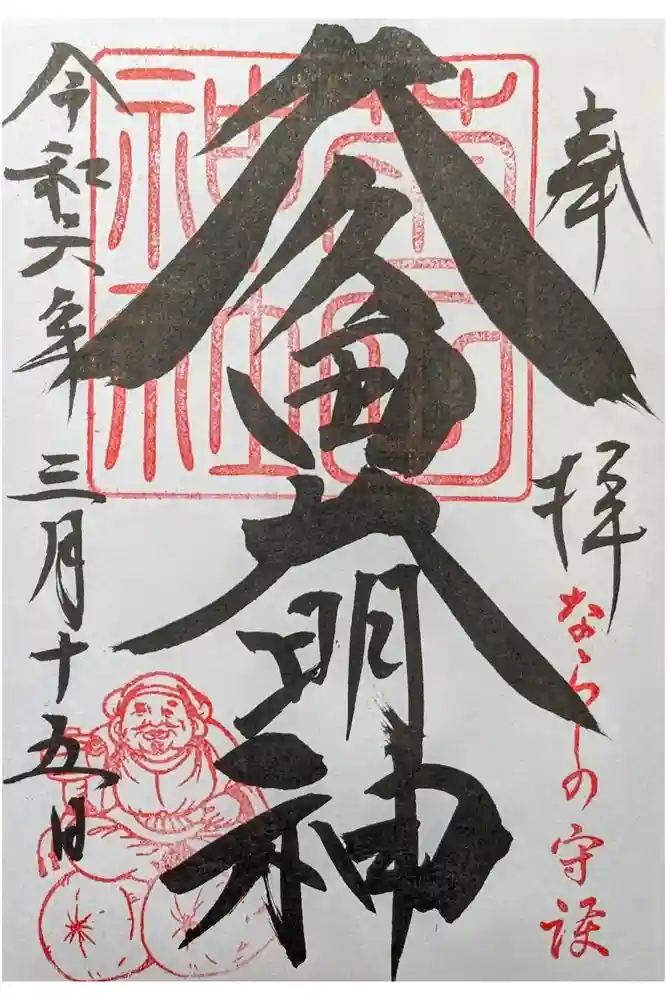 奉拝
ならしの守護
久久田大明神
菊田
神社
令和六年三月十五日